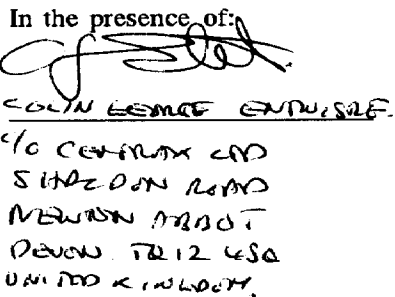 In the presence of:
COLIN GEORGE ENTWISLE.
C/O CENTRAX LTD
SHALDON ROAD
NEWTON ABBOT
DEVON TQ12 4SQ
UNITED KINGDOM.